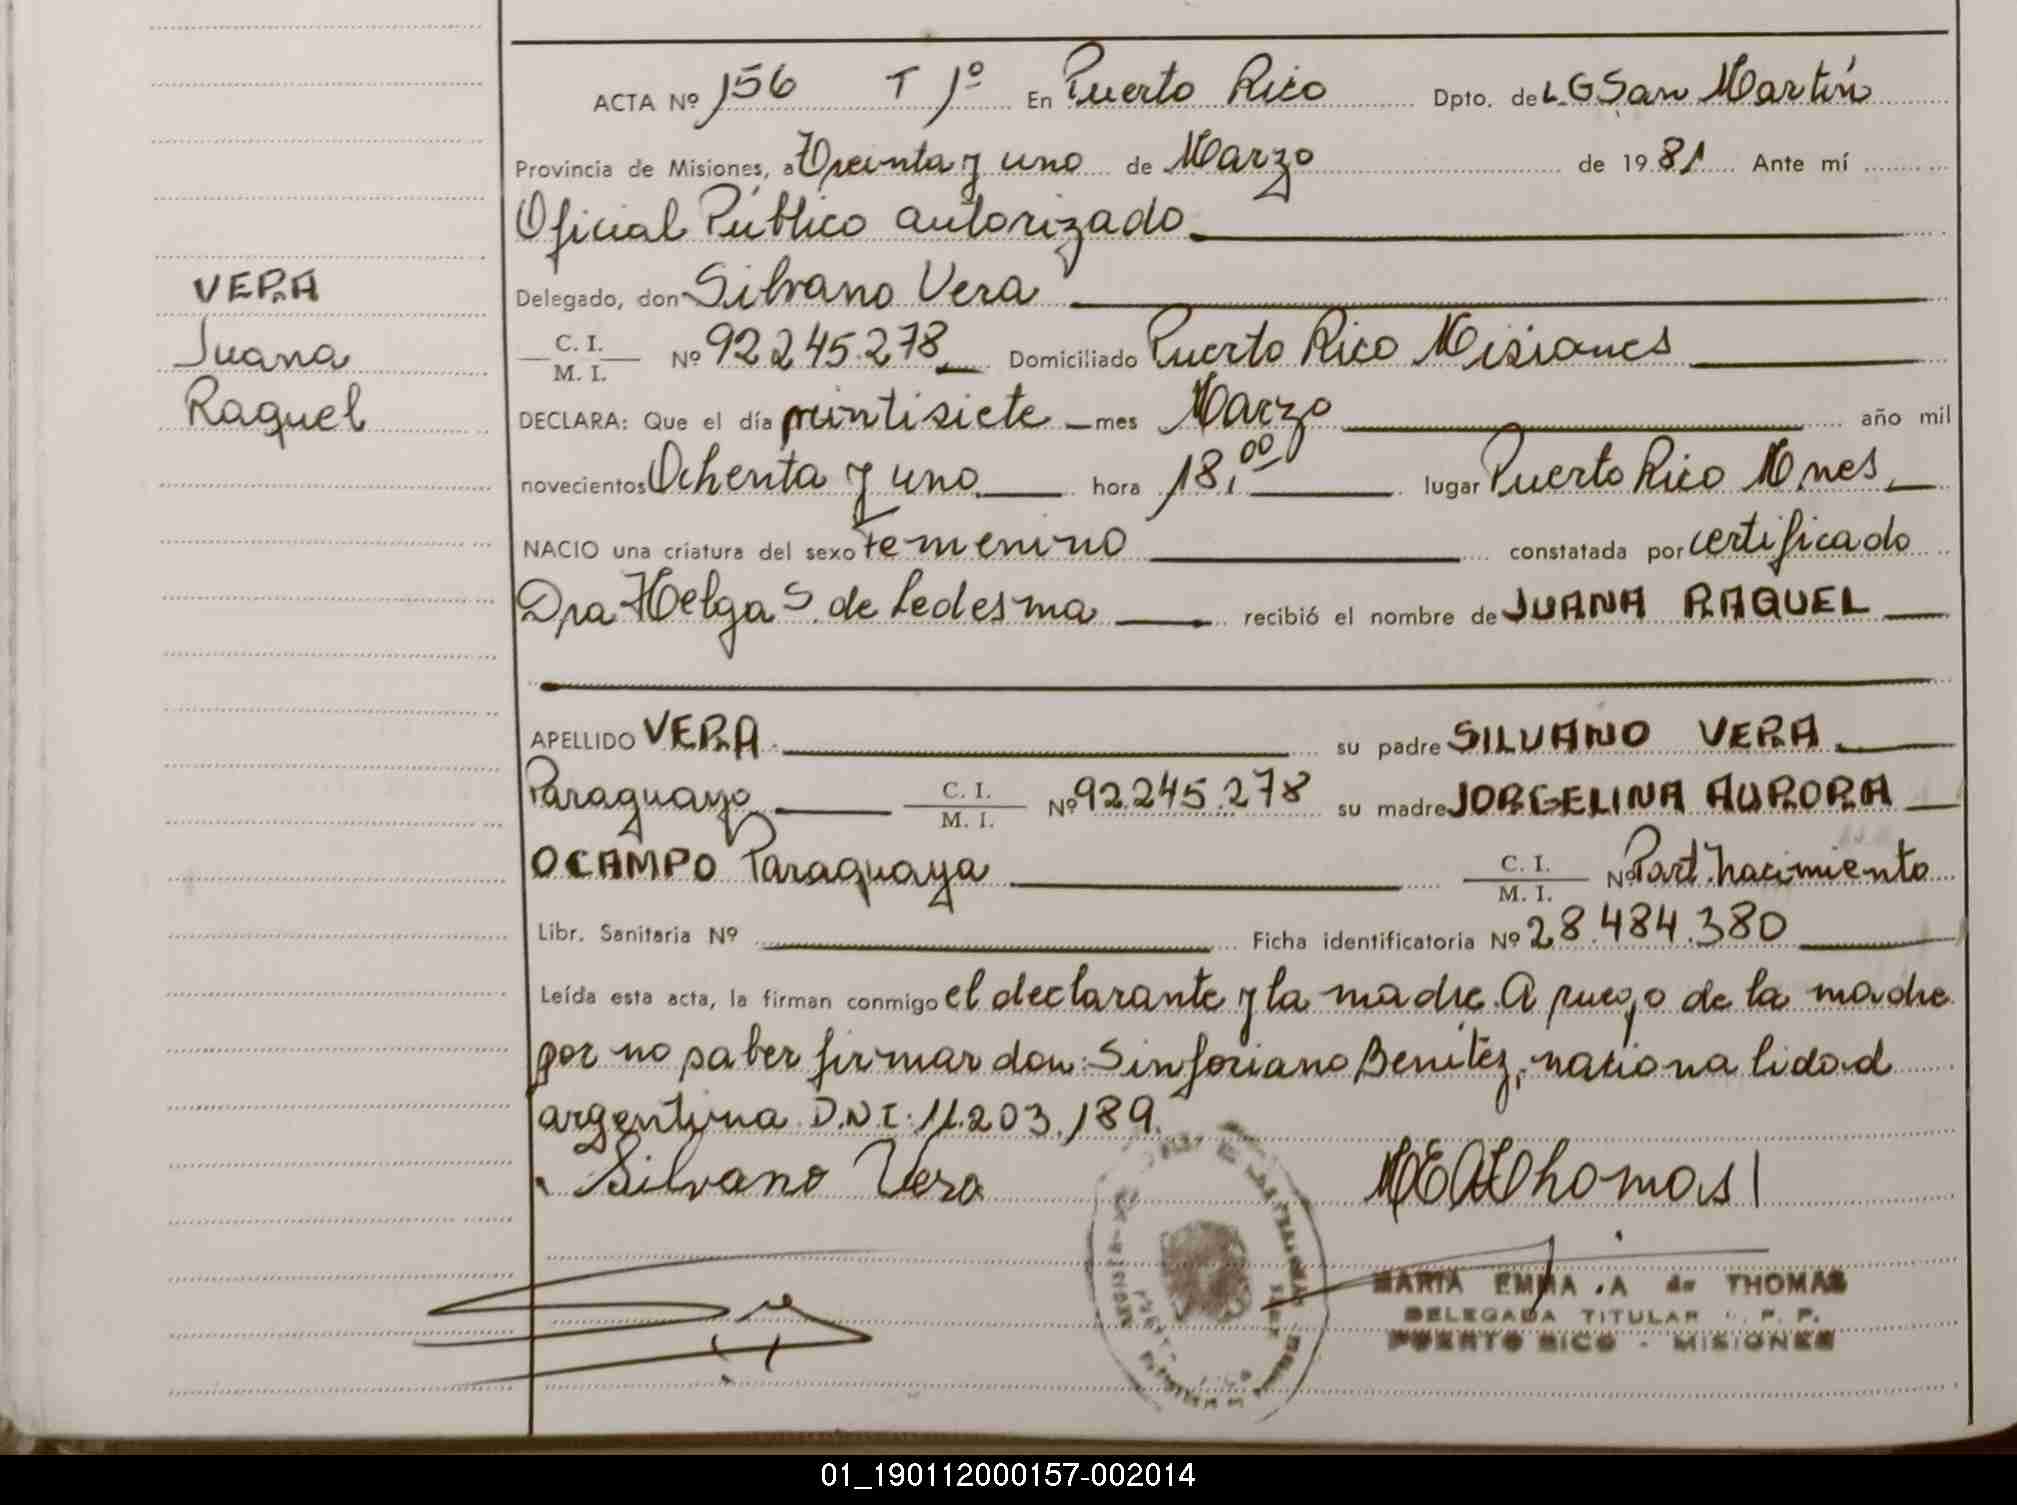 ACTA Nº 156 T 1º En Puerto Rico Dpto. de L.G San Martín
Provincia de Misiones, a Treinta y uno de Marzo de 1981 Ante mí
Oficial Público autorizado
VERA
Delegado, don Silvano Vera
Juana
C. I. M. I. Nº 92.245.278 Domiciliado Puerto Rico Misiones
Raquel
DECLARA: Que el día veintisiete mes Marzo año mil
novecientos Ochenta y uno hora 18,00 lugar Puerto Rico Mnes
NACIO una criatura del sexo Femenino constatada por certificado
Dra Helga S. de Ledesma recibió el nombre de JUANA RAQUEL
APELLIDO VERA su padre SILVANO VERA
Paraguayo C. I. M. I. Nº 92.245.278 su madre JORGELINA AURORA
OCAMPO Paraguaya C. I. M. I. Nº Part. nacimiento
Libr. Sanitaria Nº Ficha identificatoria Nº 28.484.380
Leída esta acta, la firman conmigo el declarante y la madre. A ruego de la madre
por no saber firmar don: Sinforiano Benítez, nacionalidad
argentina D.N.I: 11.203.189.
Silvano Vera MEAThomas
MARIA EMMA .A de THOMAS
DELEGADA TITULAR P. P.
PUERTO RICO - MISIONES
01_190112000157-002014